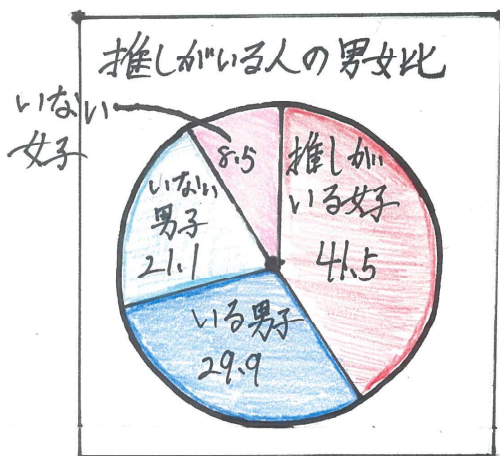 推しがいる人の男女比
いない
女子
8.5
推しが
いる女子
41.5
いない
男子
21.1
いる男子
29.9